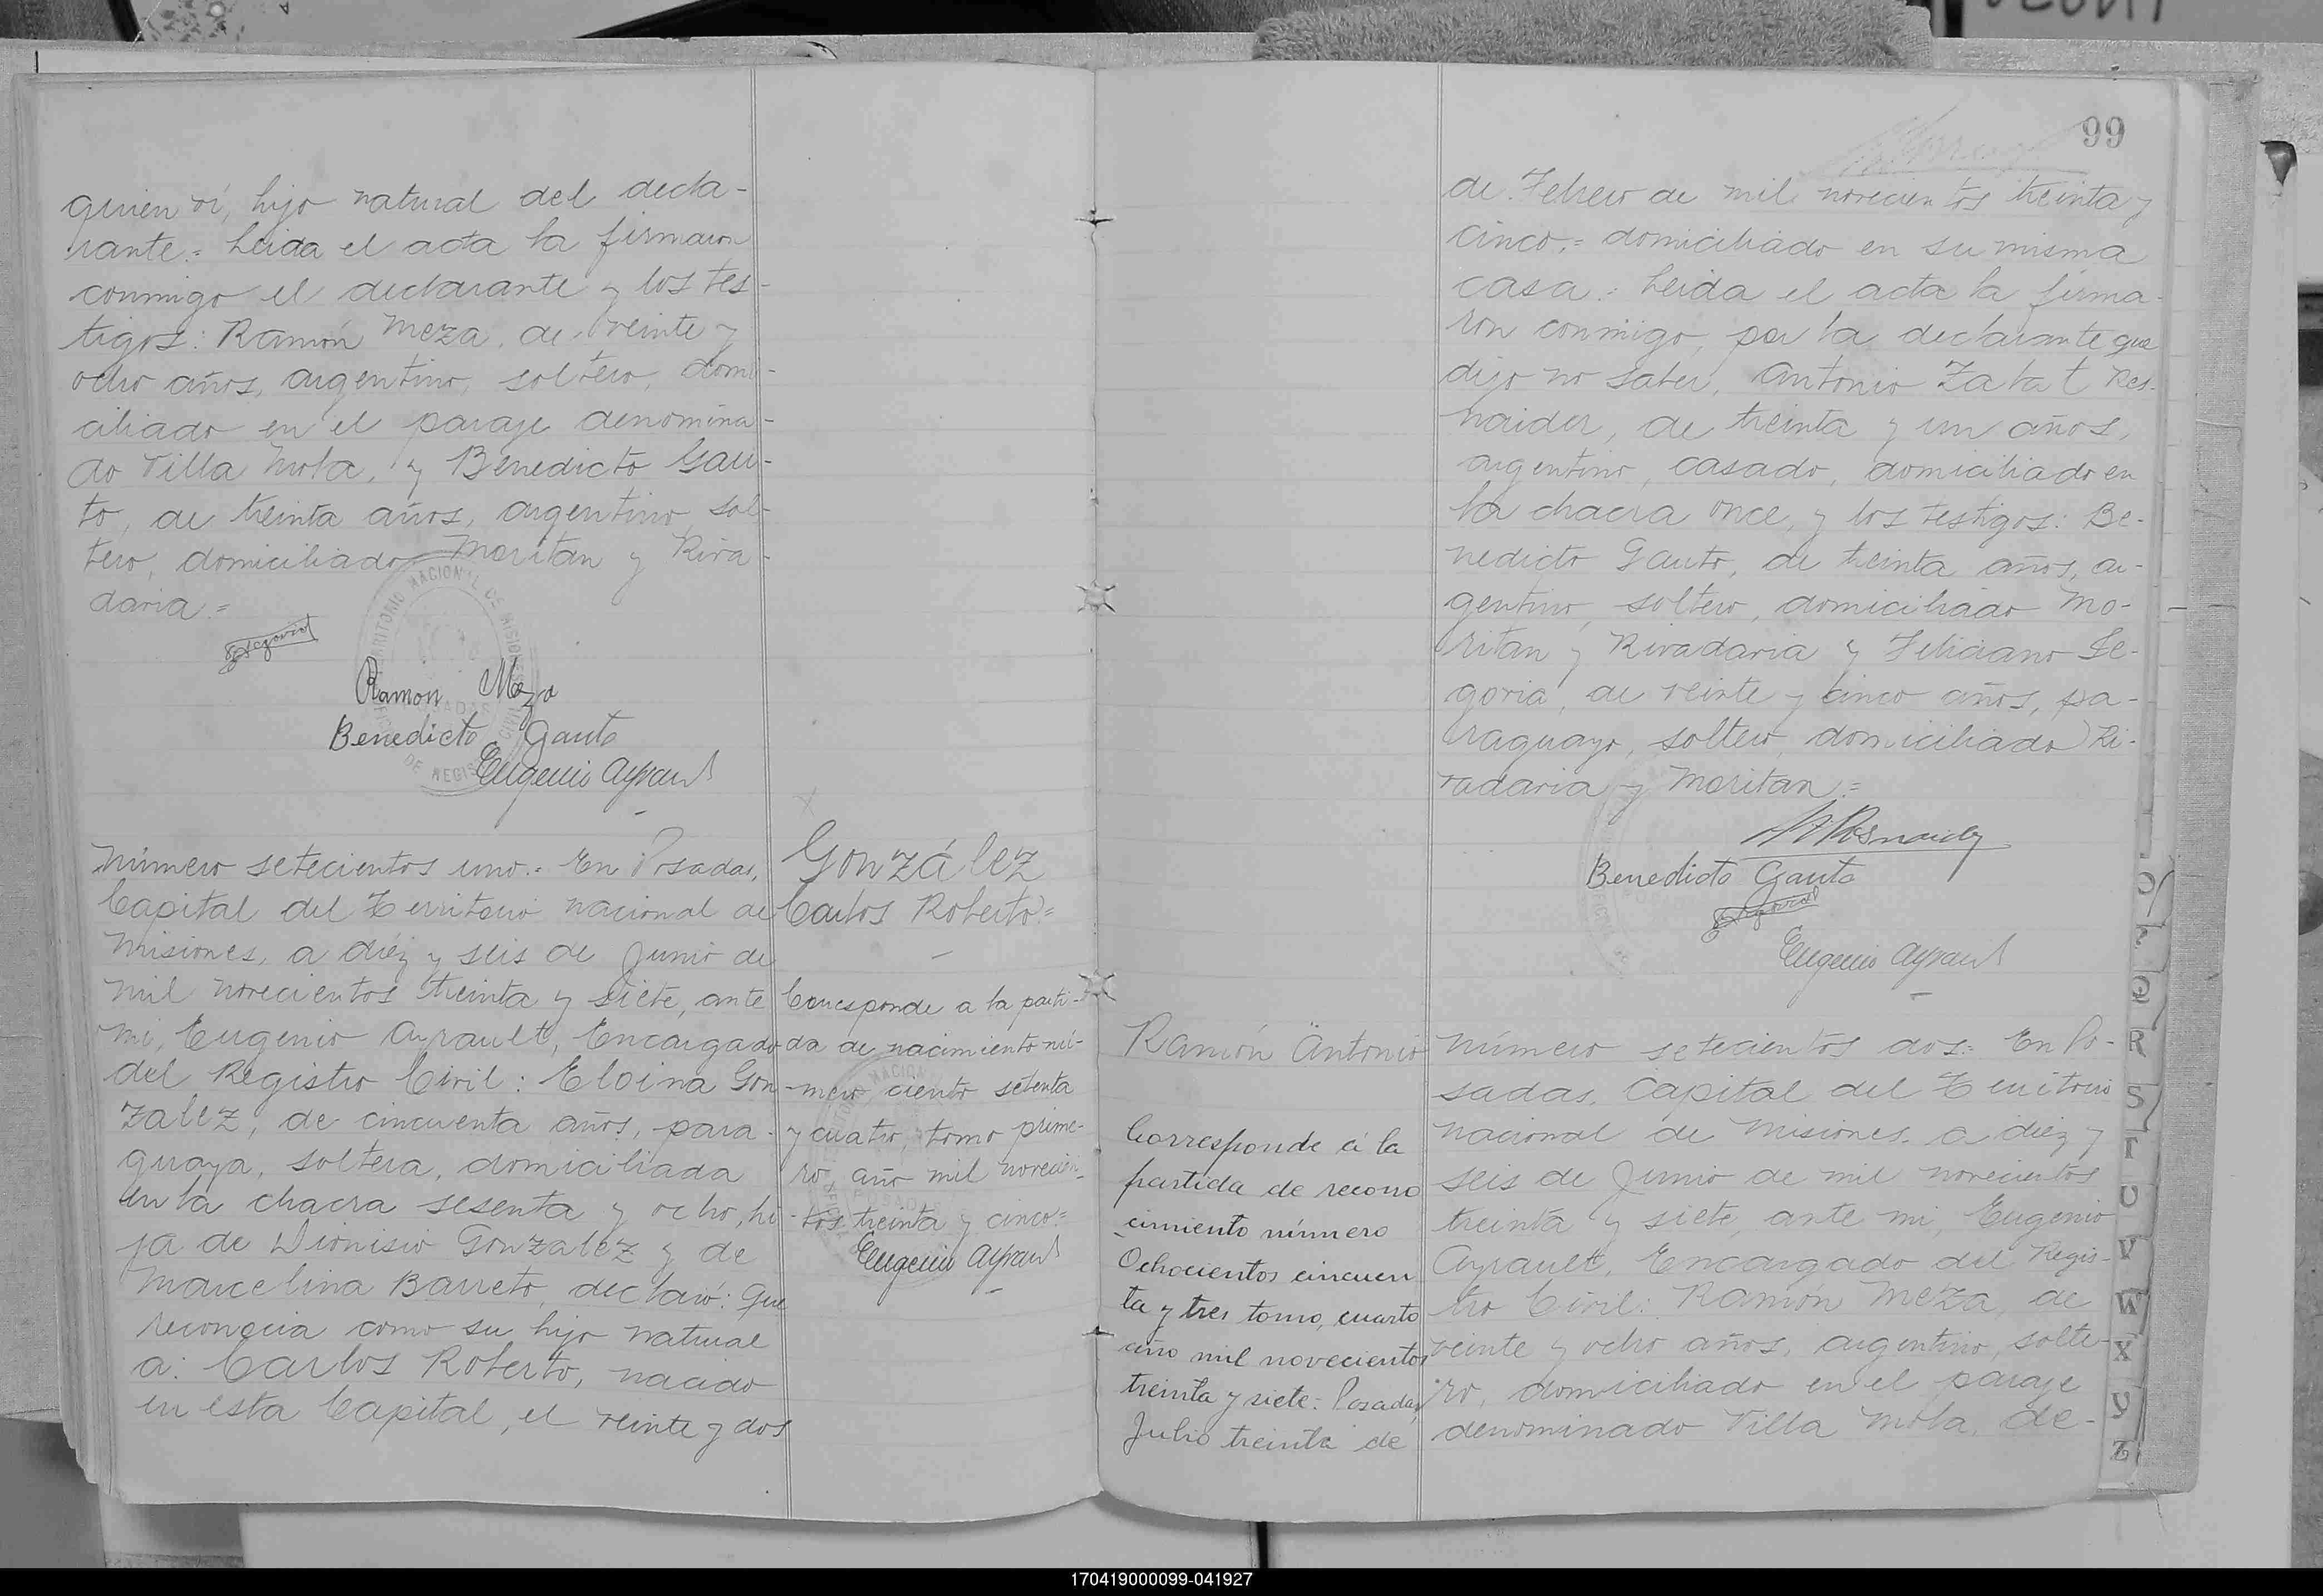 99
quien ví, hijo natural del decla-
rante.= Leida el acta la firmaron
conmigo el declarante y los tes-
tigos: Ramón Meza, de veinte y
ocho años, argentino, soltero, domi-
ciliado en el paraje denomina-
do Villa Mola, y Benedicto Gau-
to, de treinta años, argentino, sol-
tero, domiciliado Moritan y Riva-
davia =
Ramon Meza
Benedicto Gauto
Eugenio Ayrault
Número setecientos uno.= En Posadas,
Capital del Territorio nacional de
Misiones, a diéz y seis de Junio de
mil novecientos treinta y siete, ante
mi, Eugenio Ayrault, Encargado
del Registro Civil: Eloina Gon-
zalez, de cincuenta años, para-
guaya, soltera, domiciliada
en la chacra sesenta y ocho, hi-
ja de Dionisio Gonzalez y de
Marcelina Barreto, declaró: Que
reconocia como su hijo natural
a: Carlos Roberto, nacido
en esta Capital, el veinte y dos
González
Carlos Roberto=
Corresponde a la parti-
da de nacimiento nú-
mero ciento setenta
y cuatro, tomo prime-
ro año mil novecien-
tos treinta y cinco=
Eugenio Ayrault
de Febrero de mil novecientos treinta y
cinco.= domiciliado en su misma
casa.= Leida el acta la firma-
ron conmigo, por la declarante que
dijo no saber, Antonio Zabat Res-
naider, de treinta y un años,
argentino, casado, domiciliado en
la chacra once, y los testigos: Be-
nedicto Gauto, de treinta años, ar-
gentino, soltero, domiciliado Mo-
ritan y Rivadavia y Feliciano Se-
govia, de veinte y cinco años, pa-
raguayo, soltero, domiciliado Ri-
vadavia y Moritan =
Benedicto Gauto
Eugenio Ayrault
Ramón Antonio
Corresponde á la
partida de recono
cimiento número
Ochocientos cincuen
ta y tres tomo, cuarto
año mil novecientos
treinta y siete: Posadas,
Julio treinta de
Número setecientos dos.= En Po-
sadas, Capital del Territorio
nacional de Misiones, a diéz y
seis de Junio de mil novecientos
treinta y siete, ante mi, Eugenio
Ayrault, Encargado del Regis-
tro Civil: Ramón Meza, de
veinte y ocho años, argentino, solte-
ro, domiciliado en el paraje
denominado Villa Mola, de-
Q
R
S
T
U
V
W
X
Y
Z
170419000099-041927